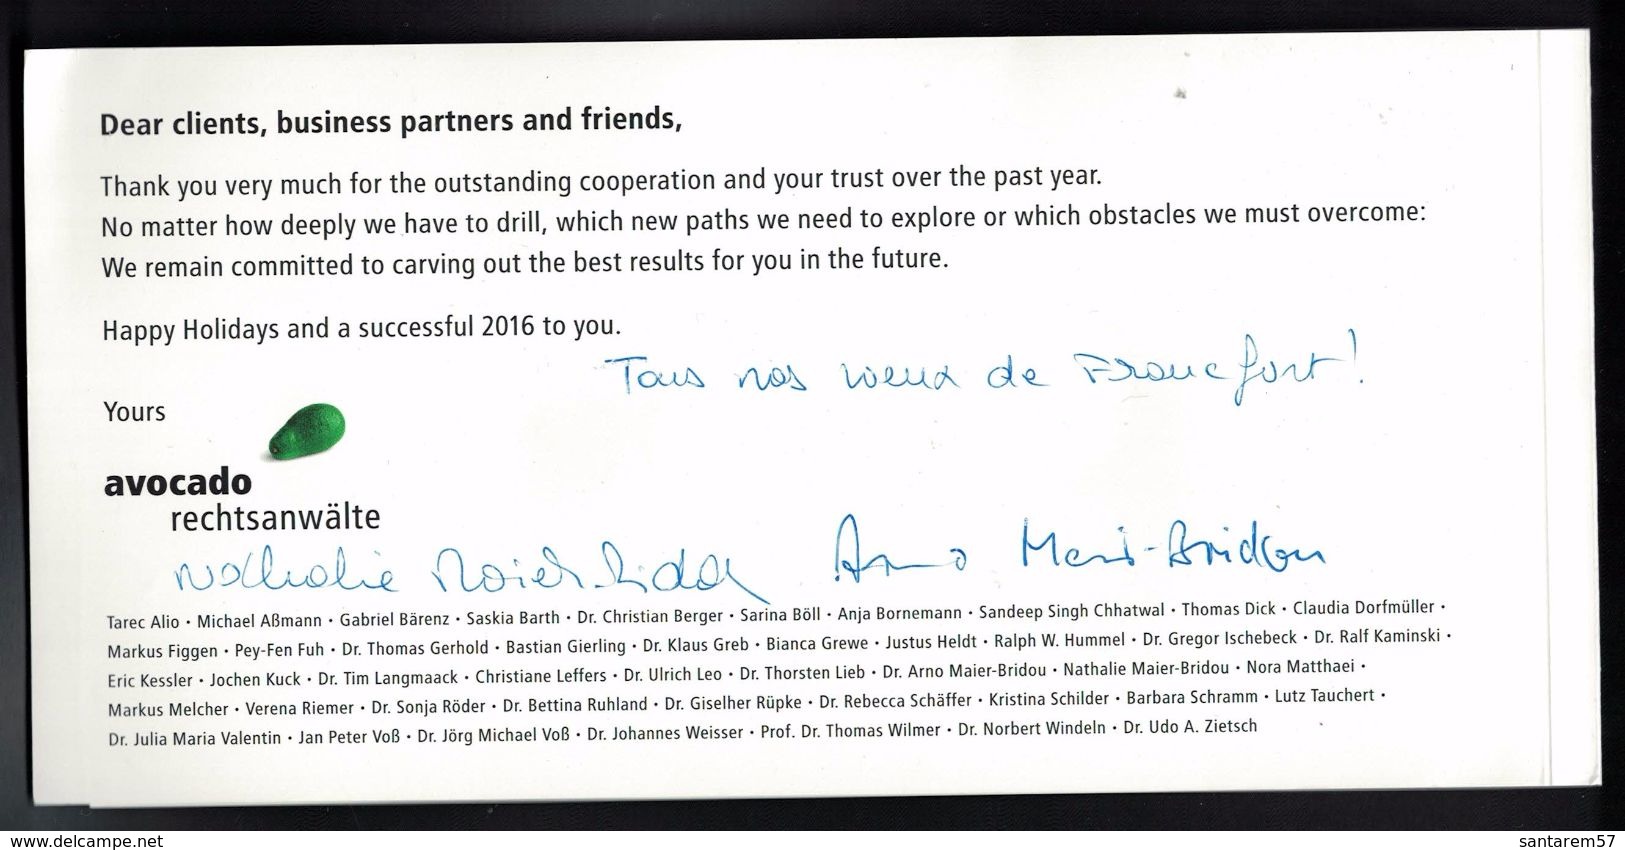 Dear clients, business partners and friends,
Thank you very much for the outstanding cooperation and your trust over the past year.
No matter how deeply we have to drill, which new paths we need to explore or which obstacles we must overcome:
We remain committed to carving out the best results for you in the future.
Happy Holidays and a successful 2016 to you.
Tous nos voeux de Francfort!
Yours
avocado
rechtsanwälte
Nathalie Maier-Bridou Arno Maier-Bridou
Tarec Alio • Michael Aßmann • Gabriel Bärenz • Saskia Barth • Dr. Christian Berger • Sarina Böll • Anja Bornemann • Sandeep Singh Chhatwal • Thomas Dick • Claudia Dorfmüller •
Markus Figgen • Pey-Fen Fuh • Dr. Thomas Gerhold • Bastian Gierling • Dr. Klaus Greb • Bianca Grewe • Justus Heldt • Ralph W. Hummel • Dr. Gregor Ischebeck • Dr. Ralf Kaminski •
Eric Kessler • Jochen Kuck • Dr. Tim Langmaack • Christiane Leffers • Dr. Ulrich Leo • Dr. Thorsten Lieb • Dr. Arno Maier-Bridou • Nathalie Maier-Bridou • Nora Matthaei •
Markus Melcher • Verena Riemer • Dr. Sonja Röder • Dr. Bettina Ruhland • Dr. Giselher Rüpke • Dr. Rebecca Schäffer • Kristina Schilder • Barbara Schramm • Lutz Tauchert •
Dr. Julia Maria Valentin • Jan Peter Voß • Dr. Jörg Michael Voß • Dr. Johannes Weisser • Prof. Dr. Thomas Wilmer • Dr. Norbert Windeln • Dr. Udo A. Zietsch
www.delcampe.net santarem57